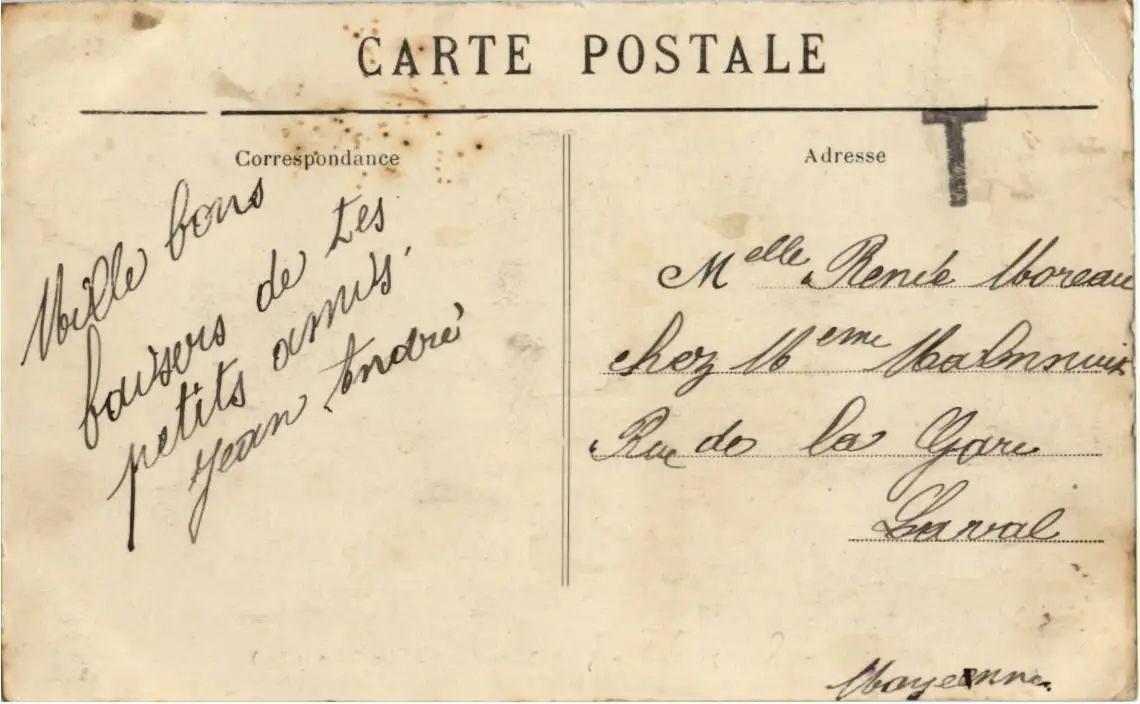 CARTE POSTALE
Correspondance
Mille bons
baisers de tes
petits amis
Jean André
Adresse
T
Melle Renée Moreau
chez Meme
Rue de la Gare
Laval
Mayenne